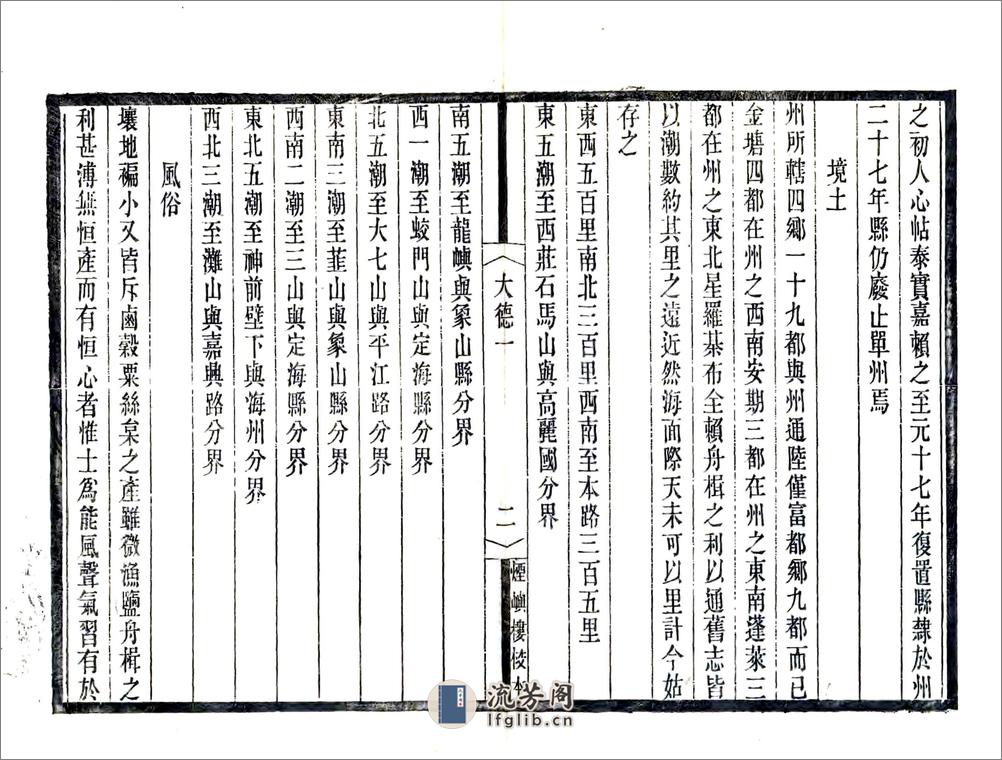 之初人心帖泰實嘉賴之至元十七年復置縣隸於州
二十七年縣仍廢止單州焉
境土
州所轄四鄉一十九都與州通陸僅富都鄉九都而已
金塘四都在州之西南安期三都在州之東南蓬萊三
都在州之東北星羅棊布全賴舟楫之利以通舊志皆
以潮數約其里之遠近然海面際天未可以里計今姑
存之
東西五百里南北三百里西南至本路三百五里
東五潮至西莊石馬山與高麗國分界
大德一
二
煙嶼樓校本
南五潮至龍嶼與象山縣分界
西一潮至蛟門山與定海縣分界
北五潮至大七山與平江路分界
東南三潮至韮山與象山縣分界
西南二潮至三山與定海縣分界
東北五潮至神前壁下與海州分界
西北三潮至灘山與嘉興路分界
風俗
壤地褊小又皆斥鹵穀粟絲枲之產雖微漁鹽舟楫之
利甚溥無恒產而有恒心者惟士爲能風聲氣習有於
流芳阁
lfglib.cn